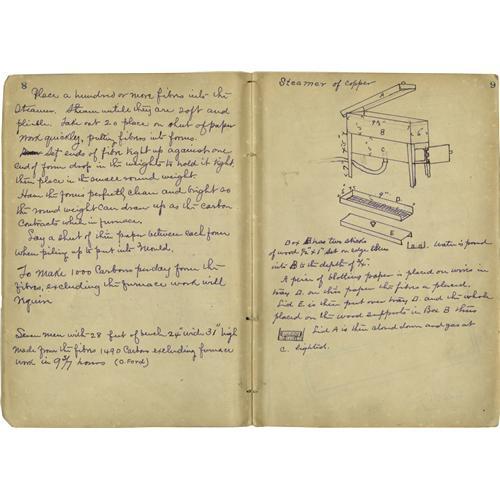 8
Place a hundred or more fibres into the
Steamer. Steam untill they are soft and
pliable. Take out 20 place on sheet of paper
work quickly, putting fibres into forms.
Set ends of fibre tight up against one
end of form drop in the weights to hold it tight
then place in the small round weight.
Have the forms perfectly clean and bright so
the round weight can draw up as the carbon
contracts while in furnace.
Lay a sheet of thin paper between each form
when piling up to put into mould.
To make 1000 Carbons per day from the
fibres, excluding the furnace work will
require
Seven men with 28 feet of bench 24" wide 31" high
made from the fibre 1490 Carbons excluding furnace
work in 9 hours (O. Ford)
9
Steamer of copper
A
B
C
9"
D
E
Box B has two sticks
of wood set on edge
water is poured
into B to the depth of
A piece of blotting paper is placed on wires in
tray D. on this paper the fibre is placed.
Lid E is then put over tray D and the whole
placed on the wood supports in Box B thus
Lid A is then closed down and gas at
C. lighted.